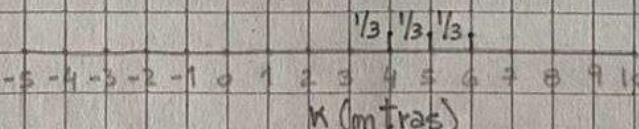 1/3 1/3 1/3
-5 -4 -3 -2 -1 0 1 2 3 4 5 6 7 8 9
x (mtras)